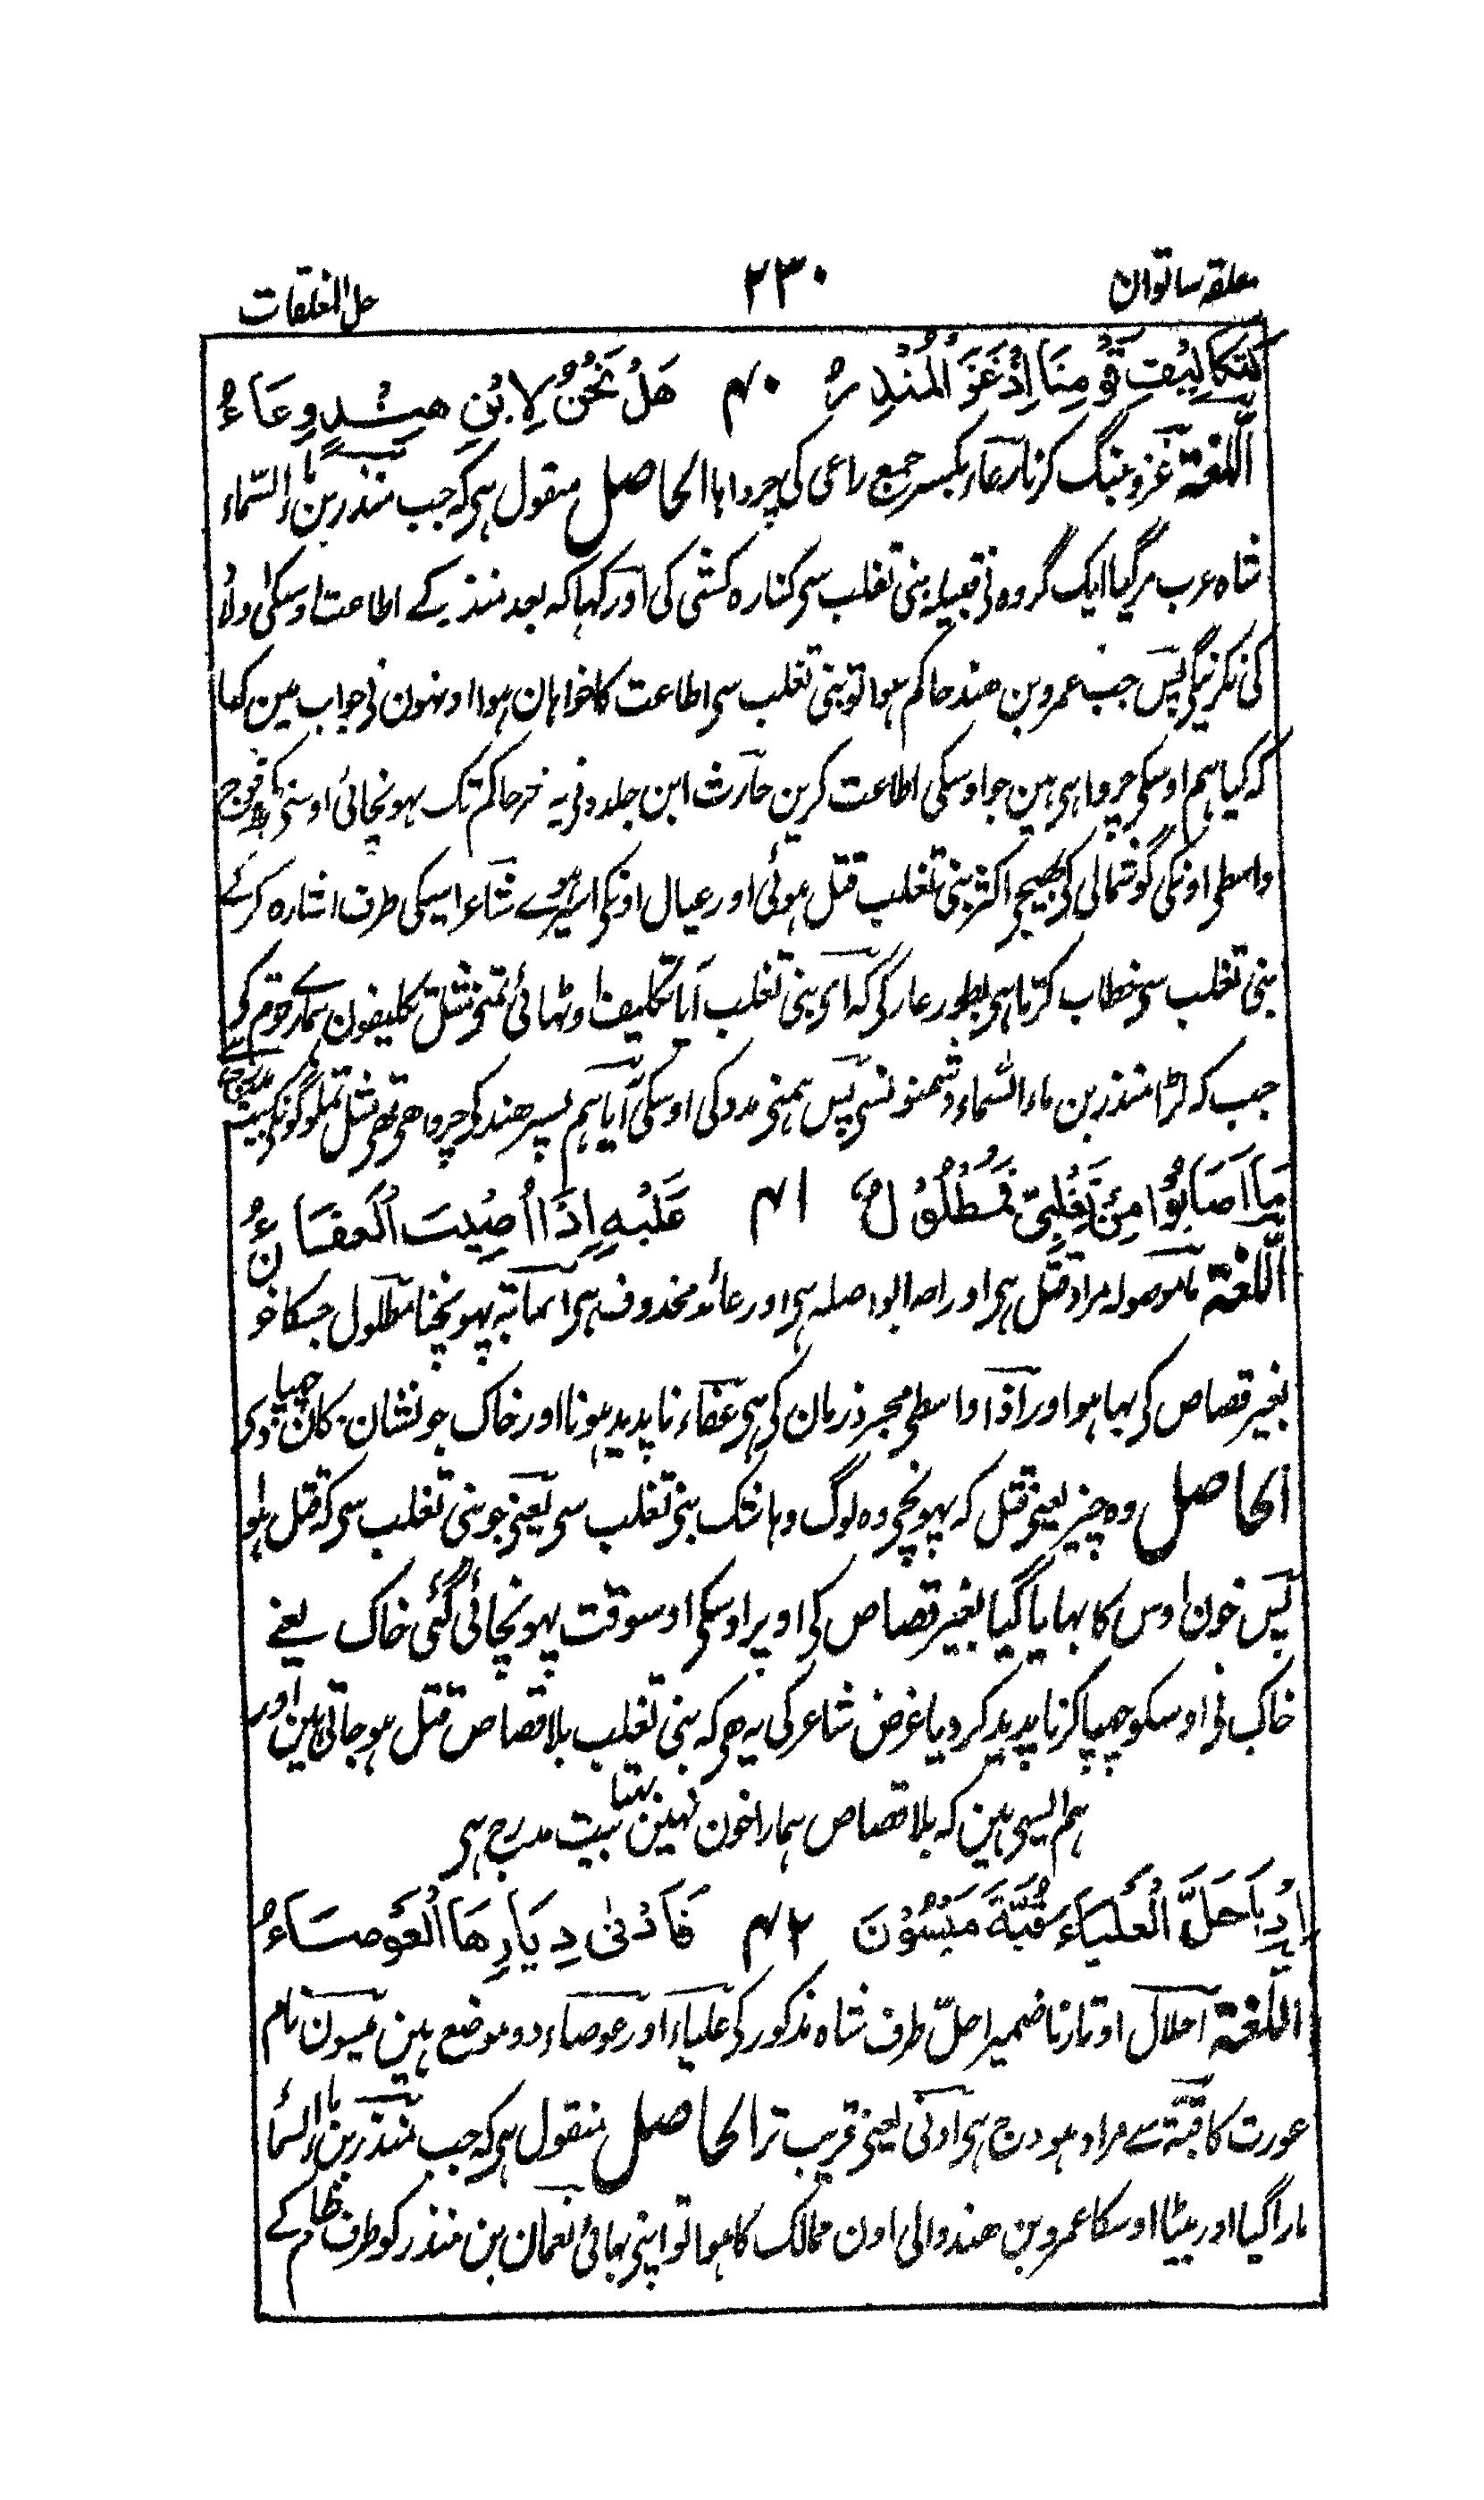 معلقہ ساتوان ۲۳۰ حل المعلقات
كَتَكَالِيْفِ قَوْمِنَا اِذْ غَزَا الْمُنْذِرُ ۴۰ هَلْ نَحْنُ لِابْنِ هِنْدٍ رِعَاءُ
اللغة غزو جنگ کرنا رعاء بکسر جمع راعی کی چرواہا الحاصل منقول ہی کہ جب منذر بن ماء السماء
شاہ عرب مرگیا ایک گروہ نی قبیلہ بنی تغلب سی کنارہ کشی کی اور کہا کہ بعد منذر کے اطاعت اوسکی اولاد
کی نکرینگی پس جب عمرو بن ہند حاکم ہوا تو بنی تغلب سی اطاعت کا خواہان ہوا اونہون نی جواب مین کہا
کہ کیا ہم اوسکی چرواہی ہین جو اوسکی اطاعت کرین حارث ابن جلدہ نی یہ خبر حاکم تک پہونچائی اوسنی فوج
واسطی اونکی گوشمالی کی بھیجی اکثر بنی تغلب قتل ہوئی اور عیال اونکی اسیر ہوے شاعر اسیکی طرف اشارہ کرکے
بنی تغلب سی خطاب کرتا ہی بطور عار کی کہ ای بنی تغلب آیا تکلیف اوٹھائی تمنی مثل تکلیفون ہمارے قوم کی
جب کہ لڑا منذر بن ماء السماء دشمنونسی پس ہمنی مدد کی اوسکی آیا ہم پسر ہند کی چرواہی تھی مثل تملوگونکی بیت مدرج ہی
مَا اَصَابُوْا مِنْ تَغْلِبِيٍّ فَمَطْلُوْلٌ ۴۱ عَلَيْهِ اِذَا اُصِيْبَ الْعَفَاءُ
اللغة ما موصولہ مراد قتل ہی اور اصابوا صلہ ہی اور عائد محذوف ہی اصابۃ پہونچنا مطلول جسکا خون
بغیر قصاص کی بہا ہو اور اذا واسطی مجرد زمان کی ہی عفاء ناپدید ہونا اور خاک جو نشان مکان چھپا دی
الحاصل وہ چیز یعنی قتل کہ پہونچی وہ لوگ وہانتک بنی تغلب سی یعنی جو بنی تغلب سی کہ قتل ہوا
پس خون اوس کا بہایا گیا بغیر قصاص کی اوپر اوسکی اوسوقت پہونچائی گئی خاک یعنے
خاک نی اوسکو چھپا کر ناپدید کر دیا غرض شاعر کی یہ ہی کہ بنی تغلب بلا قصاص قتل ہو جاتی ہین اور
ہم ایسی ہین کہ بلا قصاص ہمارا خون نہین بہتا بیت مدرج ہی
اِذْ اَحَلَّ الْعَلْيَاءَ قُبَّةَ مَيْسُوْنَ ۴۲ فَاَدْنٰى دِيَارِهَا الْعَوْصَاءُ
اللغة احلال اوتارنا ضمیر احل طرف شاہ مذکور کی علیاء اور عوصاء دو موضع ہین میسون نام
عورت کا قبۃ سے مراد ہودج ہی ادنی یعنی قریب تر الحاصل منقول ہی کہ جب منذر بن ماء السماء
مارا گیا اور بیٹا اوسکا عمرو بن ہند والی اون ممالک کا ہوا تو اپنی بھائی نعمان بن منذر کو طرف شام کے